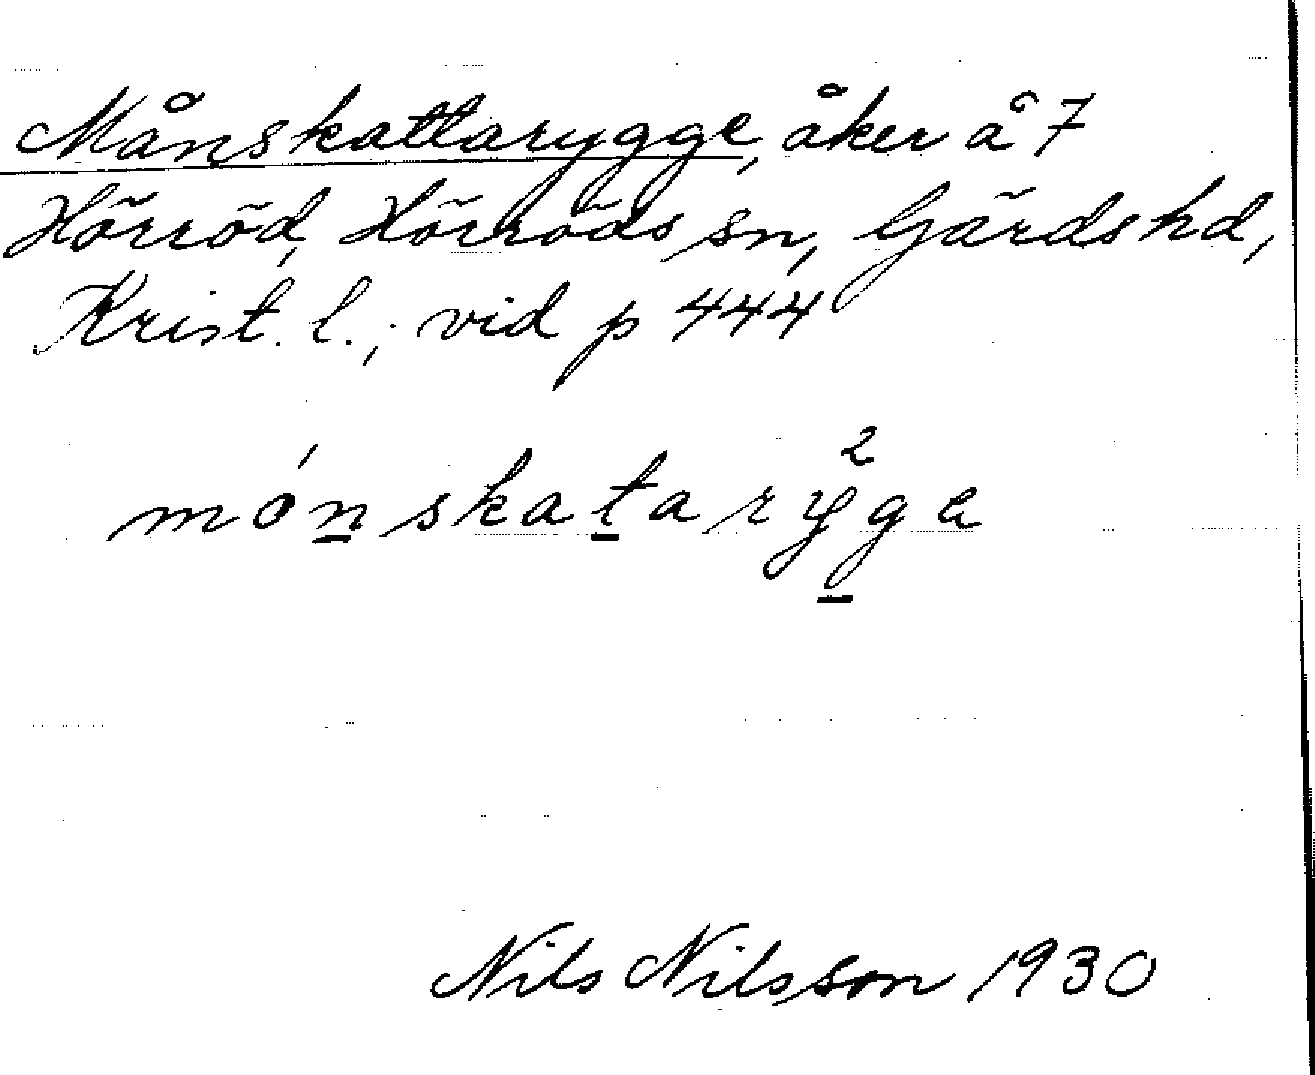 Månskattarygge, åker å 7
Hörröd, Hörröds sn, Gärds hd,
Krist. l.; vid p 444
mónskatarÿ²ge
Nils Nilsson 1930